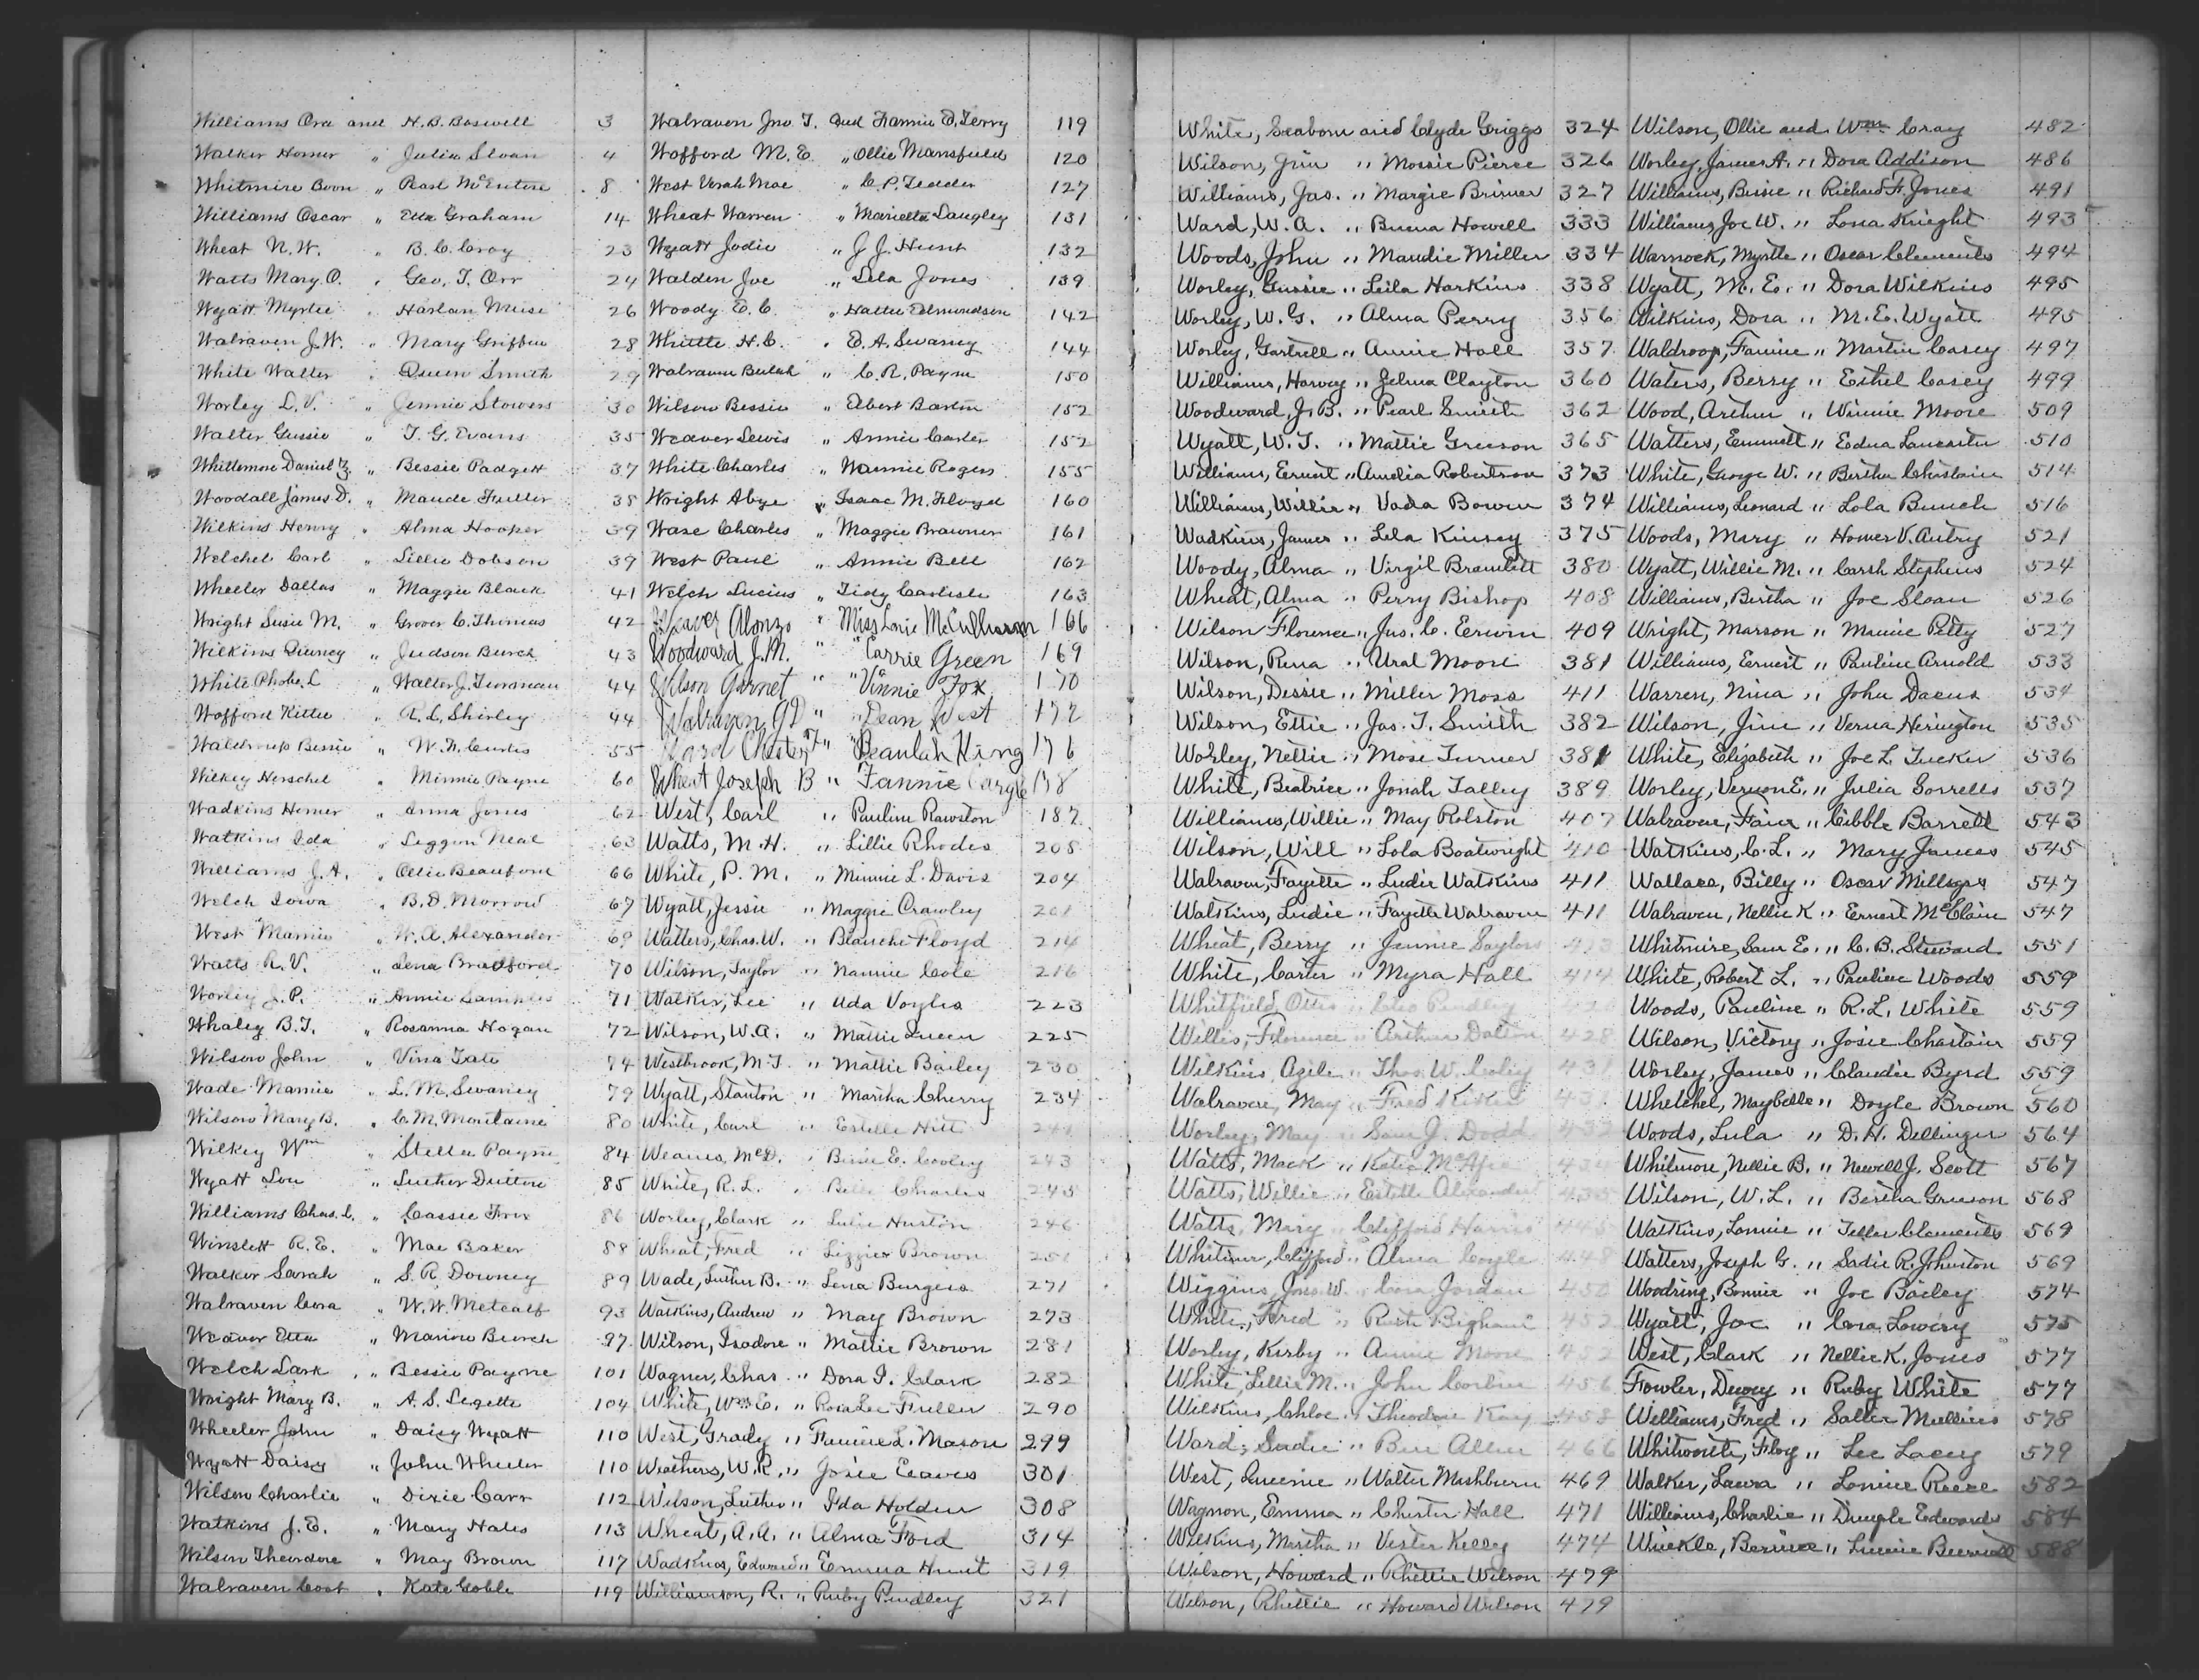 Williams Ora and H. B. Boswell 3
Walker Homer " Julia Sloan 4
Whitmire Coon " Pearl McEntire 8
Williams Oscar " Etta Graham 14
Wheat N. W. " B. C. Croy 23
Watts Mary O. " Geo. T. Orr 24
Wyatt Myrtie " Harlan Muse 26
Walraven J. W. " Mary Griffin 28
White Walter " Queen Smith 29
Worley L. V. " Jennie Stowers 30
Walter Gussie " T. G. Evans 35
Whittemore Daniel " Bessie Padgett 37
Woodall James D. " Maude Fuller 35
Wilkins Henry " Alma Hooper 39
Welchel Carl " Lillie Dobson 39
Wheeler Dallas " Maggie Black 41
Wright Susie M. " Grover C. Thomas 42
Wilkins Quincy " Judson Burch 43
White Phobe L " Walter J. 44
Wofford Kittie " R. L. Shirley 44
Waldroup Bessie " W. A. Curtis 55
Wilkey Herschel " Minnie Payne 60
Wadkins Homer " Anna Jones 62
Watkins Ida " Liggon Neal 63
Williams J. A. " Ollie Beauford 66
Welch Iowa " B. D. Morrow 67
West Mamie " W. A. Alexander 69
Watts R. V. " Lena Bradford 70
Worley J. P. " Annie Samples 71
Whaley B. T. " Rosanna Hogan 72
Wilson John " Vina Tate 74
Wade Mamie " L. M. Swaney 79
Wilson Mary B. " C. M. Mountaine 80
Wilkey Wm " Stella Payne 84
Wyatt Lou " Luther Dutton 85
Williams Chas. C. " Cassie Frix 86
Winslett R. E. " Mae Baker 88
Walker Sarah " S. R. Downey 89
Walraven Cora " W. W. Metcalf 93
Weaver Etta " Marion Burch 97
Welch Lark " Bessie Payne 101
Wright Mary B. " A. S. Legette 104
Wheeler John " Daisy Wyatt 110
Wyatt Daisy " John Wheeler 110
Wilson Charlie " Dixie Carr 112
Watkins J. E. " Mary Hales 113
Wilson Theodore " May Brown 117
Walraven Coot " Kate Goble 119
Walraven Jno. T. and Fannie D. Terry 119
Wofford M. E. " Ollie Mansfield 120
West Verah Mae " C. P. Tedder 127
Wheat Warren " Marietta Langley 131
Wyatt Jodie " J. J. Hunt 132
Walden Joe " Lela Jones 139
Woody E. C. " Hattie Edmundson 142
Whittle H. C. " E. A. Swaney 144
Walraven Beulah " C. R. Payne 150
Wilson Bessie " Ebert Barton 152
Weaver Lewis " Annie Carter 152
White Charles " Nannie Rogers 155
Wright Abye " Isaac M. Floyd 160
Ware Charles " Maggie Brawner 161
West Paul " Annie Bell 162
Welch Lucius " Tidy Carlisle 163
Weaver Alonzo " Miss Lonie McCullarson 166
Woodward J. M. " Carrie Green 169
Wilson Garnet " Vinnie Fox 170
Walraven G D " Dean West 172
Ward Chester T " Beaulah King 176
Wheat Joseph B " Fannie Cargle 178
West, Carl " Pauline Rawston 187
Watts, M. H. " Lillie Rhodes 208
White, P. M. " Minnie L. Davis 204
Wyatt, Jessie " Maggie Crawley 201
Watters, Chas. W. " Blanche Floyd 214
Wilson, Taylor " Nannie Cole 216
Walker, Lee " Uda Voyles 223
Wilson, W. A. " Mattie Queen 225
Westbrook, M. T. " Mattie Bailey 230
Wyatt, Stanton " Martha Cherry 234
White, Carl " Estelle Hitt 241
Weams, McD. " Bessie E. Cooley 243
White, R. L. " Belle Charles 245
Worley, Clark " Lulie Huston 246
Wheat, Fred " Lizzie Brown 251
Wade, Luther B. " Lena Burgess 271
Watkins, Andrew " May Brown 273
Wilson, Isadore " Mattie Brown 281
Wagner, Chas. " Dora I. Clark 282
White, Wm E. " Rosa Lee Fuller 290
West, Grady " Fannie L. Mason 299
Weathers, W. R. " Josie Eaves 301
Wilson, Luther " Ida Holden 308
Wheat, A. A. " Alma Ford 314
Wadkins, Edward " Emma Hunt 319
Williamson, R. " Ruby Pendley 321
White, Seaborn and Clyde Griggs 324
Wilson, Jim " Mossie Pierce 326
Williams, Jas. " Margie Brimer 327
Ward, W. A. " Buena Howell 333
Woods, John " Maudie Miller 334
Worley, Gussie " Leila Harkins 338
Worley, W. G. " Alma Perry 356
Worley, Gartrell " Annie Hall 357
Williams, Harvey " Zelma Clayton 360
Woodward, J. B. " Pearl Smith 362
Wyatt, W. T. " Mattie Greeson 365
Williams, Ernest " Amelia Robertson 373
Williams, Willie " Vada Bowen 374
Wadkins, James " Lela Kinsey 375
Woody, Alma " Virgil Bramlett 380
Wheat, Alma " Perry Bishop 408
Wilson Florence " Jas. C. Erwin 409
Wilson, Rena " Ural Moore 381
Wilson, Dessie " Miller Moss 411
Wilson, Ettie " Jas. T. Smith 382
Worley, Nettie " Mose Turner 381
White, Beatrice " Jonah Talley 389
Williams, Willie " May Rolston 407
Wilson, Will " Lola Boatwright 410
Walraven, Fayette " Ludie Watkins 411
Watkins, Ludie " Fayette Walraven 411
Wheat, Berry " Jennie Saylors 413
White, Carter " Myra Hall 414
Whitfield, Otto " Cleo Pendley
Willis, Florence " Arthur Dalton 428
Wilkins Agile " Thos. W. Cooley 431
Walraven, May " Fred
Worley, May " Sam J. Dodd 432
Watts, Mack " Katie McAfee 434
Watts, Willie " Estelle Alexander 435
Watts, Mary " Clifford Harris 445
Whitener, Clifford " Alma Cagle 448
Wiggins, Jno. W. " Cora Jordan 450
White, Fred " Ruth Bigham 452
Worley, Kirby " Annie Moore 452
White, Lillie M. " John Corbin 456
Wilskins, Chloe " Theodore Kay 458
Ward, Sadie " Ben Allen 466
West, Queenie " Walter Mashburn 469
Wagnon, Emma " Chester Hall 471
Wilkins, Martha " Vester Kelley 474
Wilson, Howard " Rhettie Wilson 479
Wilson, Rhettie " Howard Wilson 479
Wilson, Ollie and Wm. Cray 482
Worley, James A. " Dora Addison 486
Williams, Bessie " Richard F. Jones 491
Williams, Joe W. " Lona Knight 493
Warnock, Myrtle " Oscar Clements 494
Wyatt, M. E. " Dora Wilkins 495
Wilkins, Dora " M. E. Wyatt 495
Waldroop, Fannie " Martin Casey 497
Waters, Berry " Ethel Casey 499
Wood, Arthur " Winnie Moore 509
Watters, Emmett " Edna Lancaster 510
White, George W. " Bertha Chastain 514
Williams, Leonard " Lola Bunch 516
Woods, Mary " Homer V. Autry 521
Wyatt, Willie M. " Carsh Stephens 524
Williams, Bertha " Joe Sloan 526
Wright, Marson " Mamie Petty 527
Williams, Ernest " Pauline Arnold 533
Warren, Nina " John Dacus 534
Wilson, Jim " Verna Herington 535
White, Elizabeth " Joe L Tucker 536
Worley, Vernon E. " Julia Sorrells 537
Walraven, Fair " Cibble Barrett 543
Watkins, C. L. " Mary James 545
Wallace, Billy " Oscar Millsaps 547
Walraven, Nellie K " Ernest McClain 547
Whitmire, Cam E. " C. B. Steward 551
White, Robert L. " Pauline Woods 559
Woods, Pauline " R. L. White 559
Wilson, Victory " Josie Chastain 559
Worley, James " Claudie Byrd 559
Whelchel, Maybelle " Doyle Brown 560
Woods, Lula " D. H. Dellinger 564
Whitmore, Nellie B. " Newell J. Scott 567
Wilson, W. L. " Bertha Greeson 568
Watkins, Lonnie " Tellie Clements 569
Watters, Joseph G. " Sadie R. Jhuston 569
Woodring, Bonnie " Joe Bailey 574
Wyatt, Joe " Cora Lowery 575
West, Clark " Nellie K. Jones 577
Fowler, Dewey " Ruby White 577
Williams, Fred " Sallie Mullins 578
Whitworth, Floy " Lee Lacey 579
Walker, Laura " Lonnie Reese 582
Williams, Charlie " Dimple Edwards 584
Winkle, Bernice " Linnie 588